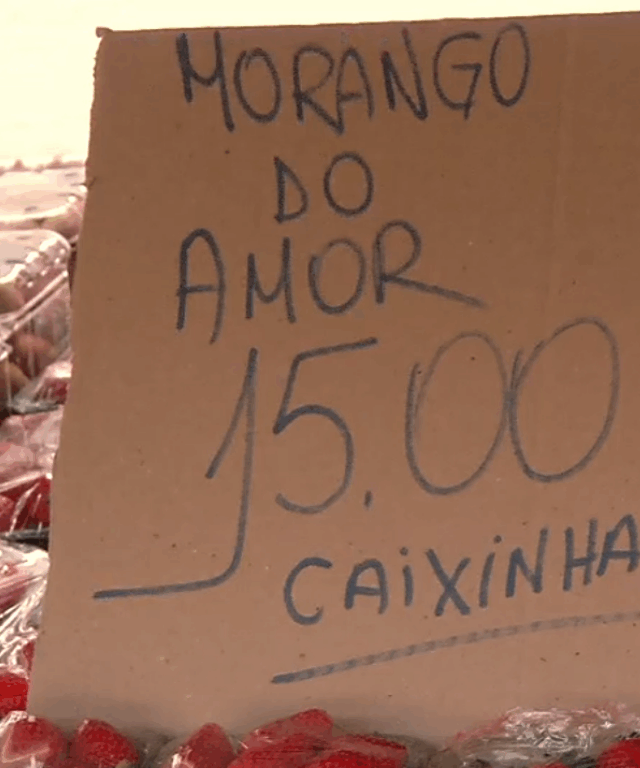 MORANGO
DO
AMOR
15.00
CAIXINHA